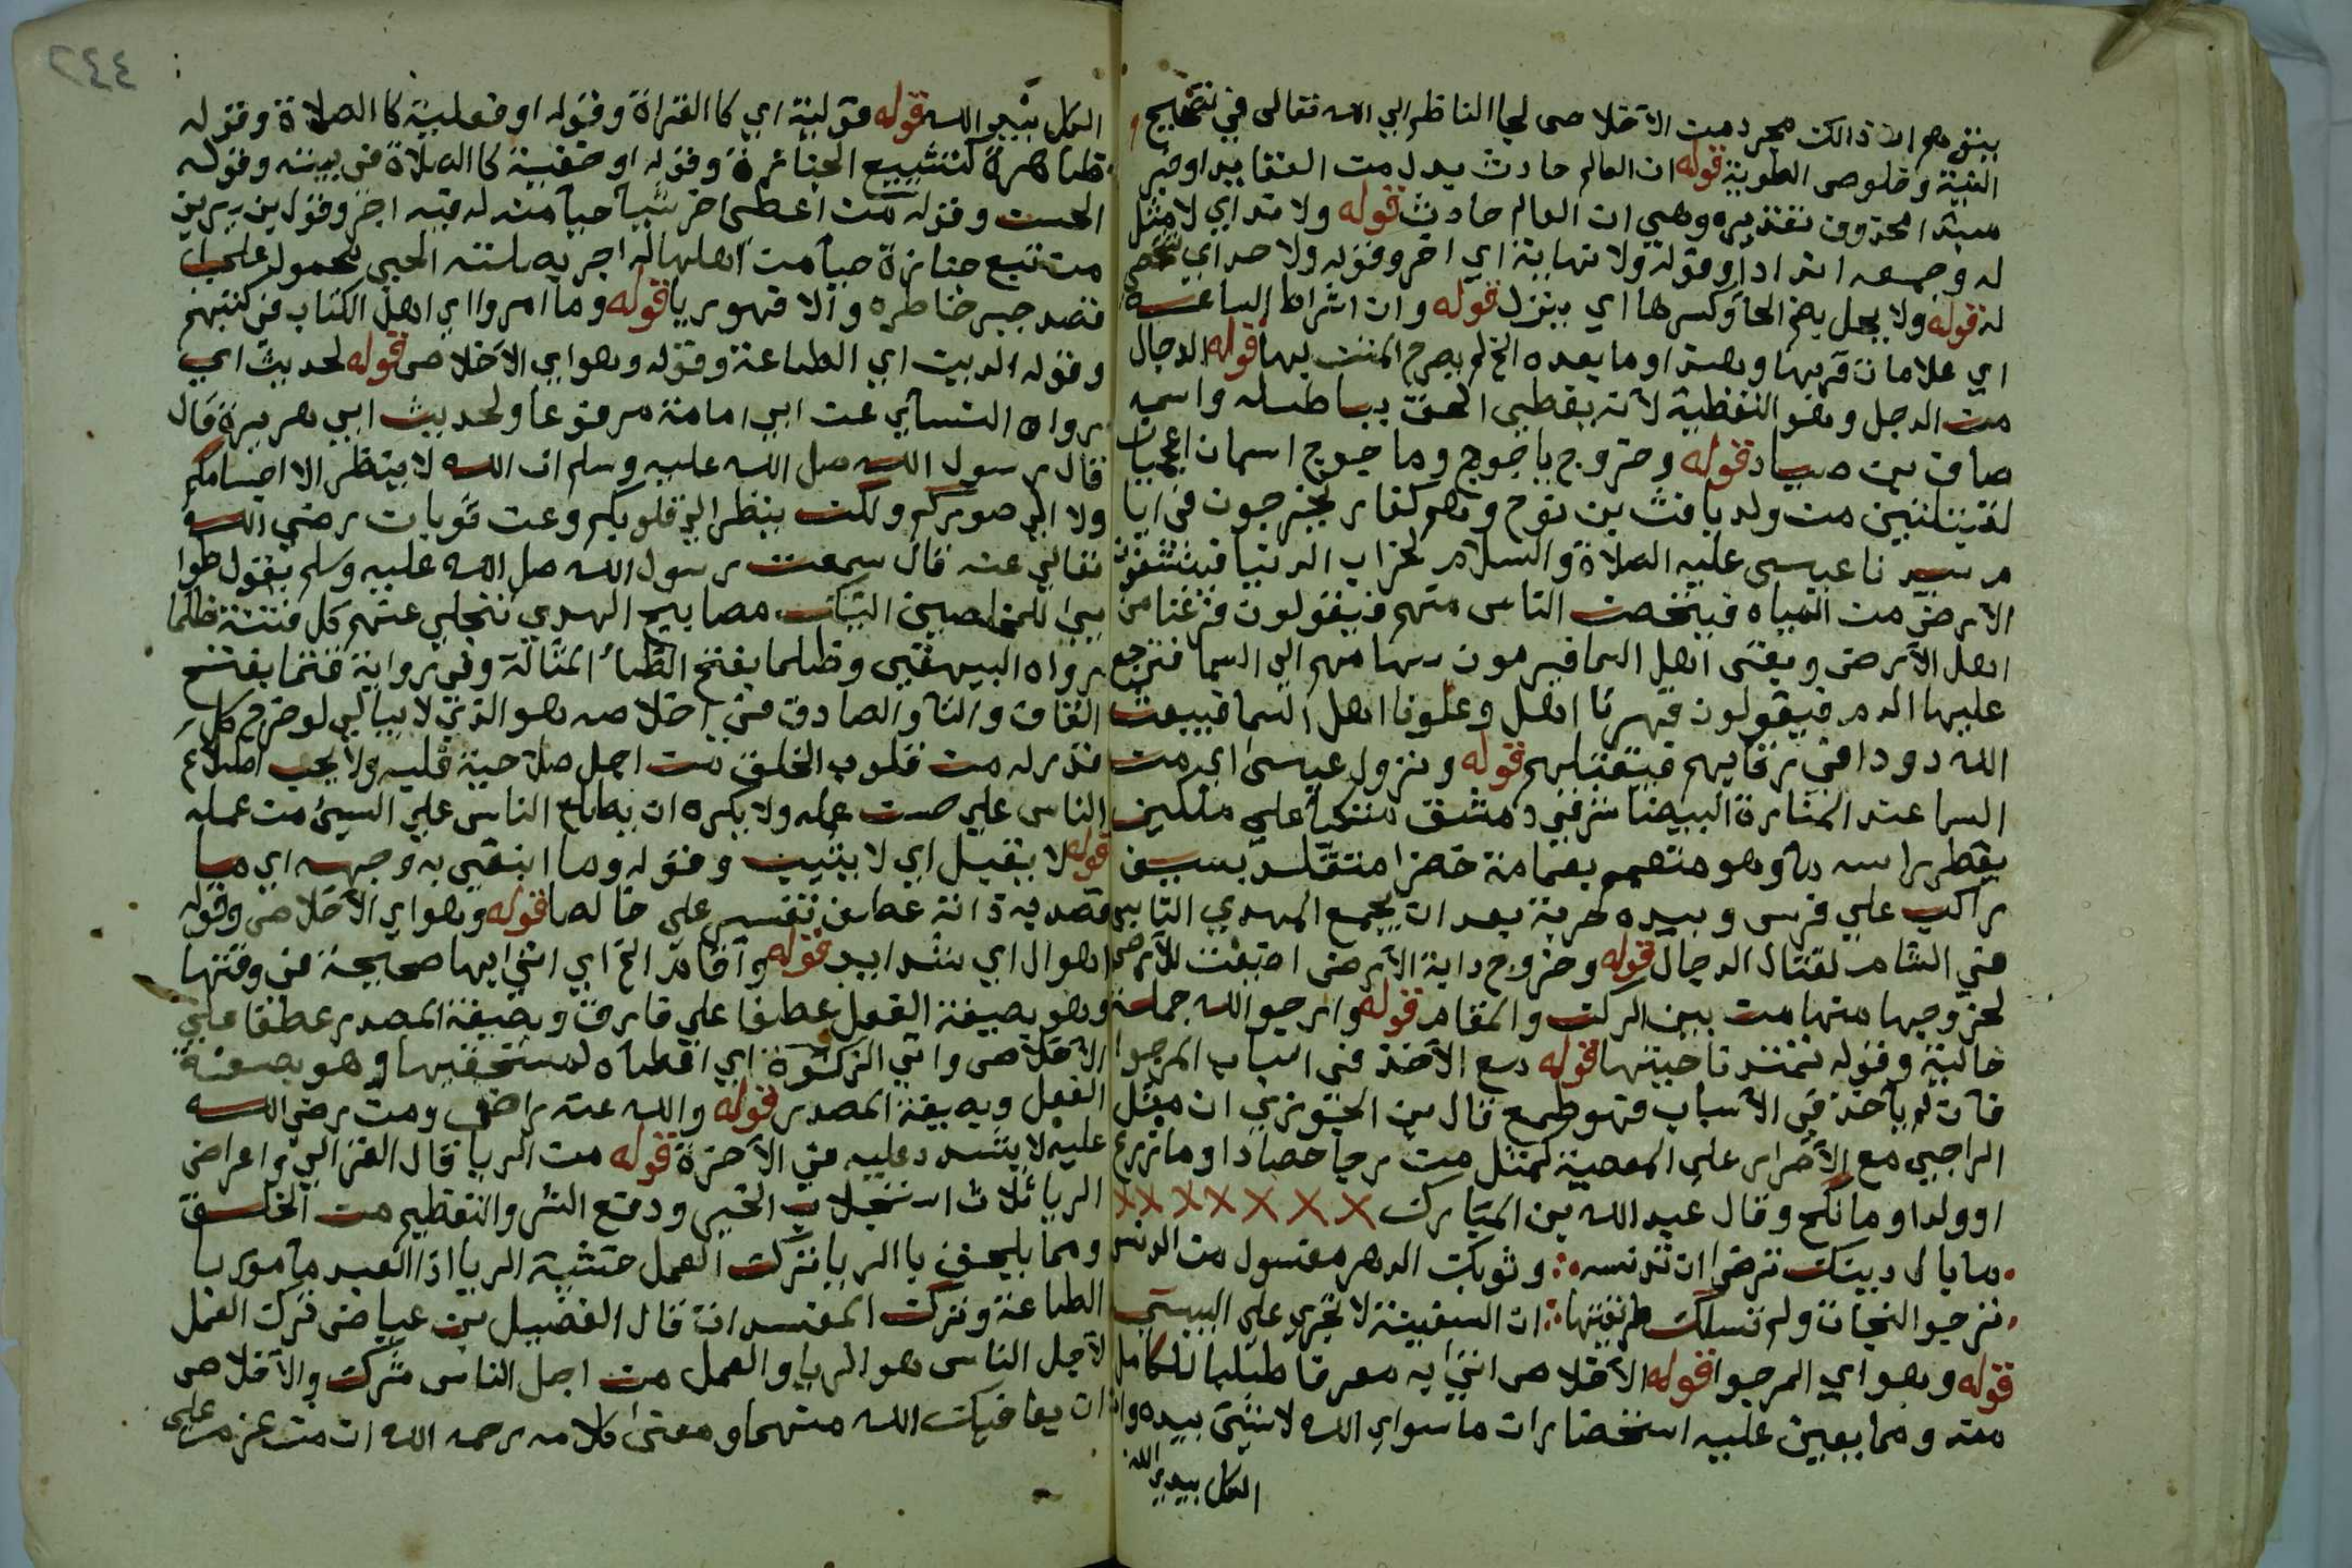 يتوهم ان ذالك مجرد من الاخلاص لجا الناظر الي الله تعالى في تصحيح
النية وخلوص الطوية قوله ان العالم حادث بدل من العقايد او خبر
مبتدا محذوف تقديره وهي ان العالم حادث قوله ولا ند اي لا مثل
له وجمعه انداداً وقوله ولا نهاية اي اخر وقوله ولا حد اي
له قوله ولا يحل بضم الحاء وكسرها اي ينزل قوله وان اشراط الساعة
اي علامات قربها وهذا وما بعده الخ لم يصرح المتن بها قوله الدجال
من الدجل وهو التغطية لانه يغطي الحق بباطله واسمه
صاف بن صياد قوله وخروج ياجوج وماجوج اسمان اعجميان
لقبيلتين من ولد يافث بن نوح وهم كفار يخرجون في ايا
م سيدنا عيسى عليه الصلاة والسلام لخراب الدنيا فينشفون
الارض من المياه فيتحصن الناس منهم فيقولون فرغنا من
اهل الارض وبقي اهل السما فيرمون سهامهم الى السما فترجع
عليها الدم فيقولون قهرنا اهل وعلونا اهل السما فيبعث
الله دودا في رقابهم فيقتلهم قوله ونزول عيسى اي من
السما عند المنارة البيضا شرقي دمشق متكيا على ملكين
يقطر راسه ماً وهو متعمم بعمامة خضرا متقلد بسيف
راكب على فرس وبيده حربة بعد ان يجمع المهدي الناس
في الشام لقتال الدجال قوله وخروج دابة الارض اضيفت للارض
لخروجها منها من بين الركن والمقام قوله وارجوا الله جملة
حالية وقوله ناحيتها قوله مع الاخذ في اسباب المرجوا
فان لم ياخذ في الاسباب فهو طمع قال بن الجوزي ان مثل
الراجي مع الاصرار على المعصية كمثل من رجا حصادا وما زرع
او ولدا وما نكح وقال عبد الله بن المبارك
ما بال دينك ترضى ان تدنسه وثوبك الدهر مغسول من الدنس
ترجوا النجاة ولم تسلك طريقتها ان السفينة لا تجري على اليبس
قوله وهو اي المرجوا قوله الاخلاص اتى به معرفا طلبا للكامل
منه ومما يعين عليه استحضار ان ما سواي الله لا شيئ بيده وان
الكل بيدي الله
٢٤٤
الكل بيد الله قوله قولية اي كا القراة وقوله او فعلية كا الصلاة وقوله
ظاهرة كتشييع الجنائزة وقوله او خفية كا الصلاة في بيته وقوله
الحسن وقوله من اعطى اخر شياً حياً منه له فيه اجر وقوله بن سيرين
من تبع جنازة حياً من اهلها له اجر بصلته الحي محمول على
قصد جبر خاطره والا فهو ريا قوله وما امروا اي اهل الكتاب في كتبهم
وقوله الدين اي الطاعة وقوله وهو اي الاخلاص قوله لحديث اي
رواه النساي عن ابي امامة مرفوعا ولحديث ابي هريرة قال
قال رسول الله صل الله عليه وسلم ان الله لا ينظر الا اجسامكم
ولا الى صوركم ولكن ينظر الى قلوبكم وعن ثوبان رضي الله
تعالي عنه قال سمعت رسول الله صل الله عليه وسلم يقول طوا
بى للمخلصين اوليك مصابيح الهدي تنجلي عنهم كل فتنة ظلما
رواه البيهقي وظلما بفتح الظاء المشالة وفي رواية قتما بفتح
القاف والتا والصادق في اخلاصه هو الذي لا يبالي لو خرج كل
قدر له من قلوب الخلق من اجل صلاحية قلبه ولا يحب اطلاع
الناس علي حسن عمله ولا يكره ان يطلع الناس علي السيئ من عمله
قوله لا يقبل اي لا يثيب وقوله وما ابتغي به وجهه اي ما
قصد به ذاته عطف تفسير على خالصا قوله وهو اي الاخلاص وقوله
اهوال اي شدايد قوله واقام الخ اي اتي ايها صحيحة في وقتها
وهو بصيغة الفعل عطفا علي فارق وبصيغة المصدر عطفا على
الاخلاص واتي الزكوة اي اعطاه لمستحقيها وهو بصيغة
الفعل وبصيغة المصدر قوله والله عنه راض ومن رضي الله
عليه لا يشدد عليه في الاخرة قوله من الريا قال الغزالي واعراض
الريا ثلاث استجلاب الخير ودفع الشر والتعظيم من الخلق
ومما يلحق با الريا ترك العمل خشية الريا اذا العبد مامور با
الطاعة وترك المفسدات قال الفضيل بن عياض ترك العمل
لاجل الناس هو الريا والعمل من اجل الناس شرك والاخلاص
ان يعافيك الله منهما ومعنى كلامه رحمه الله ان من عزم على